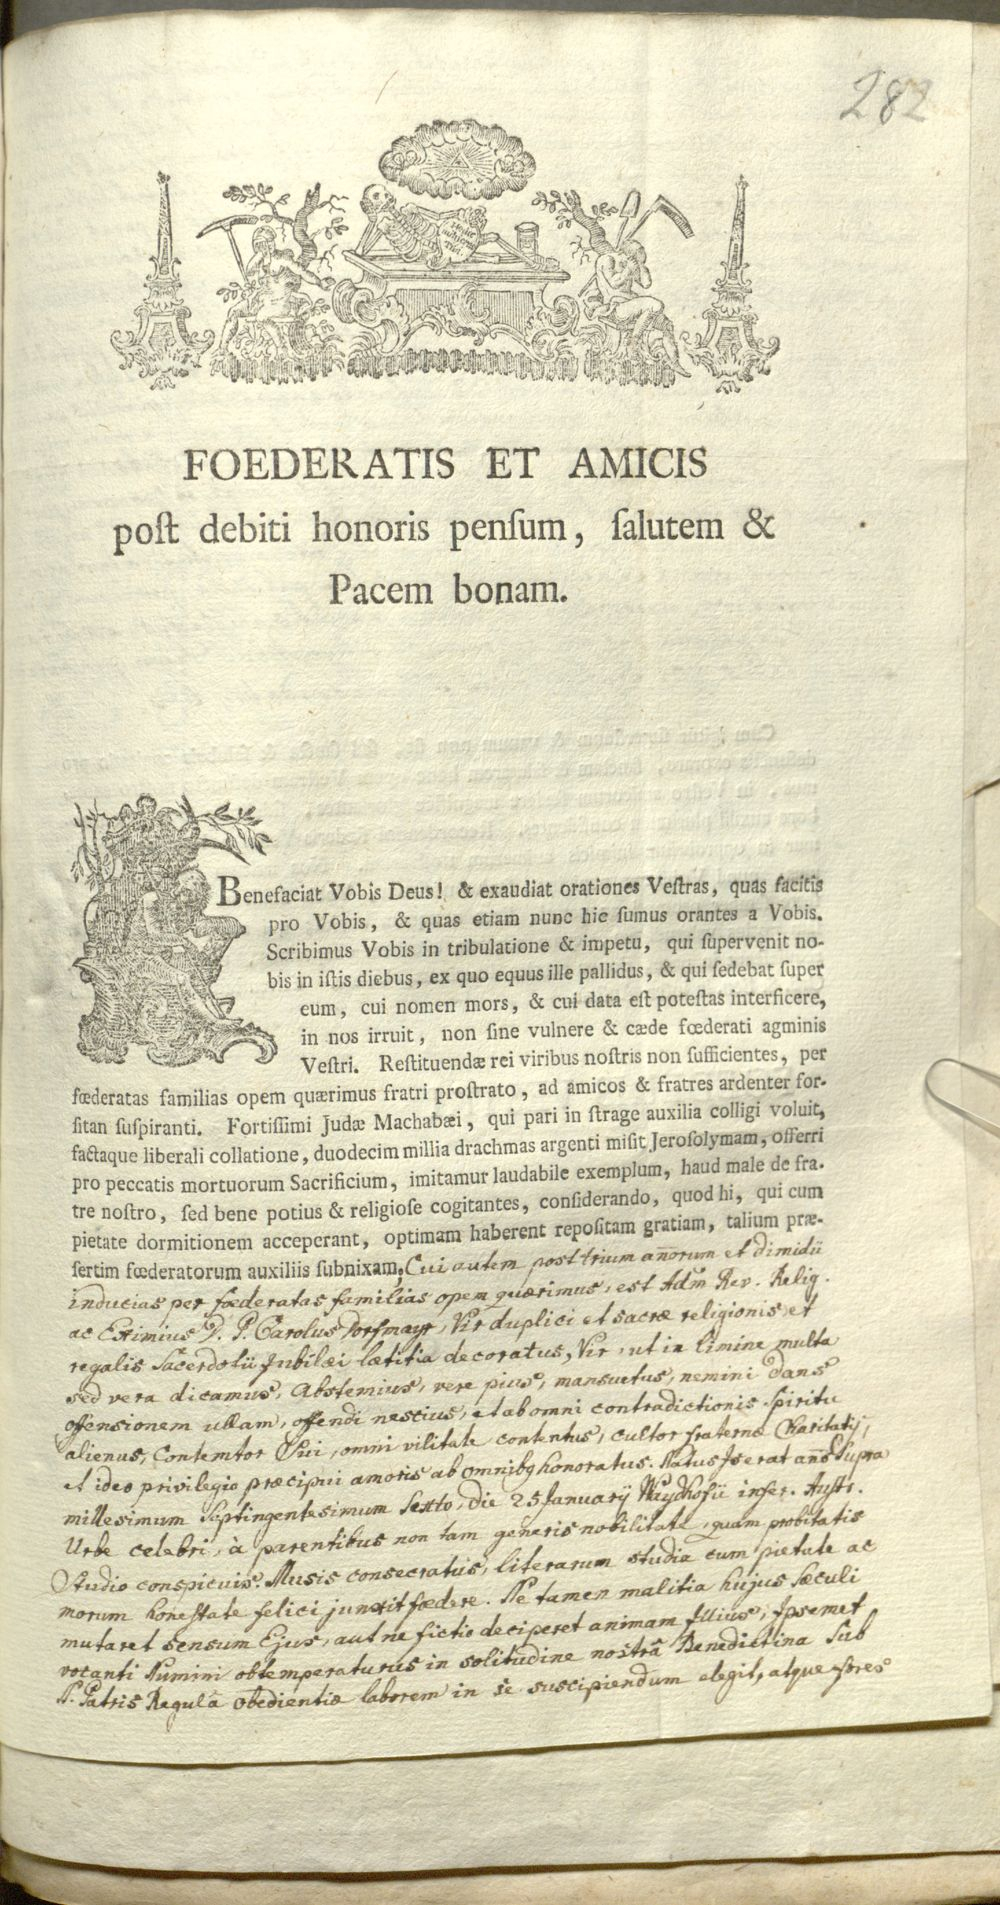 282
FOEDERATIS ET AMICIS
poſt debiti honoris penſum, ſalutem &
Pacem bonam.
Benefaciat Vobis Deus! & exaudiat orationes Veſtras, quas facitis
pro Vobis, & quas etiam nunc hic ſumus orantes a Vobis.
Scribimus Vobis in tribulatione & impetu, qui ſupervenit no-
bis in iſtis diebus, ex quo equus ille pallidus, & qui ſedebat ſuper
eum, cui nomen mors, & cui data eſt poteſtas interficere,
in nos irruit, non ſine vulnere & cæde fœderati agminis
Veſtri. Reſtituendæ rei viribus noſtris non ſufficientes, per
fœderatas familias opem quærimus fratri proſtrato, ad amicos & fratres ardenter for-
ſitan ſuſpiranti. Fortiſſimi Judæ Machabæi, qui pari in ſtrage auxilia colligi voluit,
factaque liberali collatione, duodecim millia drachmas argenti miſit Jeroſolymam, offerri
pro peccatis mortuorum Sacrificium, imitamur laudabile exemplum, haud male de fra-
tre noſtro, ſed bene potius & religioſe cogitantes, conſiderando, quod hi, qui cum
pietate dormitionem acceperant, optimam haberent repoſitam gratiam, talium præ-
ſertim fœderatorum auxiliis ſubnixam, Cui autem post trium an̄orum et dimidii
inducias per fœderatas familias opem quærimus, est Adm̄ Rev. Relig.
ac Eximius D. P. Carolus Dorfmayr, Vir duplici et sacræ religionis et
regalis Sacerdotii Jubilæi lætitia decoratus, Vir, ut in limine multa
sed vera dicamus, Abstemius, vere pius, mansuetus, nemini dans
offensionem ullam, offendi nescius, et ab omni contradictionis Spiritu
alienus, Contemtor Sui, omni vilitate contentus, cultor fraternæ Charitatis,
et ideo privilegio præcipui amoris ab omnibq honoratus. Natus Is erat an̄o Supra
millesimum Septingentesimum Sexto, die 25 Januarij Waydhofii infer. Austr.
Urbe celebri, à parentibus non tam generis nobilitate, quam probitatis
Studio conspicuis. Musis consecratus, literarum studia cum pietate ac
morum honestate felici junxit fœdere. Ne tamen malitia hujus Sæculi
mutaret sensum Ejus, aut ne fictio deciperet animam Illius, Ipsemet
vocanti Numini obtemperaturus in solitudine nostrâ Benedictina Sub
S. Patris Regulâ obedientiæ laborem in se suscipiendum elegit, atque fores